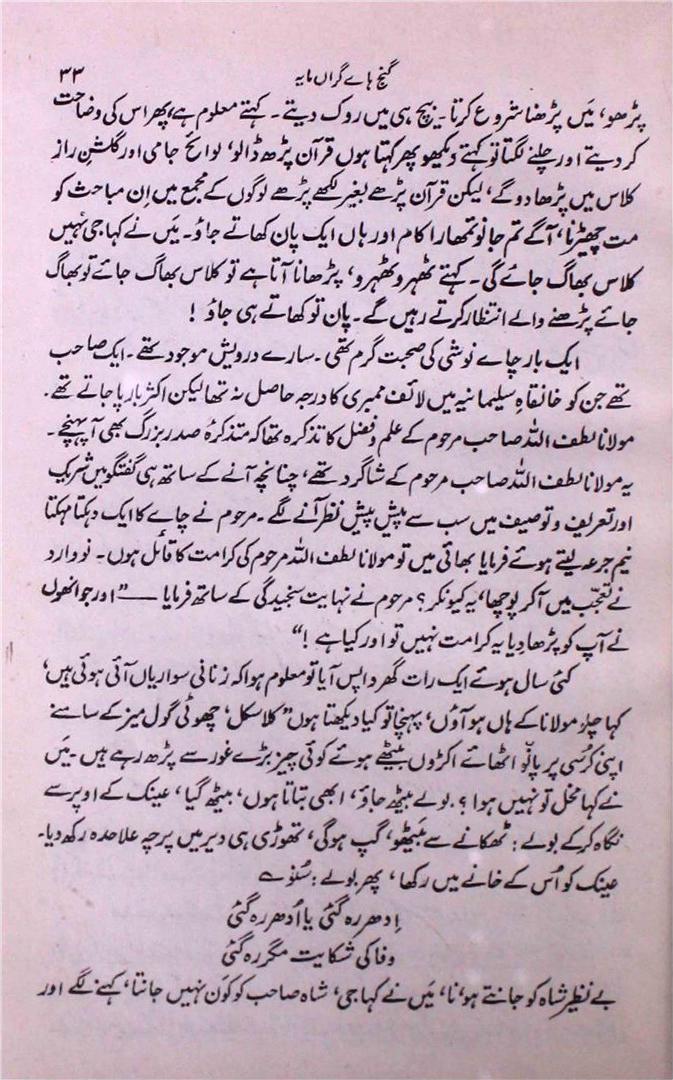 گنج ہاے گراں مایہ
۳۳
پڑھو، مَیں پڑھنا شروع کرتا۔ بیچ ہی میں روک دیتے۔ کہتے معلوم ہے، پھر اس کی وضاحت
کر دیتے اور چلنے لگتا تو کہتے دیکھو پھر کہتا ہوں قرآن پڑھ ڈالو، لوائحِ جامی اور گلشنِ راز
کلاس میں پڑھا دو گے، لیکن قرآن پڑھے بغیر لکھے پڑھے لوگوں کے مجمع میں اِن مباحث کو
مت چھیڑنا، آگے تم جانو تمھارا کام اور ہاں ایک پان کھاتے جاؤ۔ مَیں نے کہا جی نہیں
کلاس بھاگ جائے گی۔ کہتے ٹھہرو ٹھہرو، پڑھانا آتا ہے تو کلاس بھاگ جائے تو بھاگ
جائے پڑھنے والے انتظار کرتے رہیں گے۔ پان تو کھاتے ہی جاؤ !
ایک بار چاے نوشی کی صحبت گرم تھی۔ سارے درویش موجود تھے۔ ایک صاحب
تھے جن کو خانقاہِ سلیمانیہ میں لائف ممبری کا درجہ حاصل نہ تھا لیکن اکثر بار پا جاتے تھے۔
مولانا لطف اللہ صاحب مرحوم کے علم و فضل کا تذکرہ تھا کہ متذکرۂ صدر بزرگ بھی آ پہنچے۔
یہ مولانا لطف اللہ صاحب مرحوم کے شاگرد تھے، چنانچہ آنے کے ساتھ ہی گفتگو میں شریک
اور تعریف و توصیف میں سب سے پیش پیش نظر آنے لگے۔ مرحوم نے چاے کا ایک دہکتا مہکتا
نیم جرعہ لیتے ہوئے فرمایا بھائی میں تو مولانا لطف اللہ مرحوم کی کرامت کا قائل ہوں۔ نو وارد
نے تعجّب میں آ کر پوچھا، یہ کیونکر؟ مرحوم نے نہایت سنجیدگی کے ساتھ فرمایا —— ”اور جو انھوں
نے آپ کو پڑھا دیا یہ کرامت نہیں تو اور کیا ہے !“
کئی سال ہوئے ایک رات گھر واپس آیا تو معلوم ہوا کہ زنانی سواریاں آئی ہوئی ہیں،
کہا چلو مولانا کے ہاں ہو آؤں، پہنچا تو کیا دیکھتا ہوں ”کلاسکل، چھوٹی گول میز کے سامنے
اپنی کُرسی پر پانْو اٹھائے اکڑوں بیٹھے ہوئے کوئی چیز بڑے غور سے پڑھ رہے ہیں۔ مَیں
نے کہا مخل تو نہیں ہوا ؟۔ بولے بیٹھ جاؤ، ابھی بتاتا ہوں، بیٹھ گیا، عینک کے اوپر سے
نگاہ کر کے بولے : ٹھکانے سے بَیٹھو، گپ ہو گی، تھوڑی ہی دیر میں پرچہ علاحدہ رکھ دیا۔
عینک کو اُس کے خانے میں رکھا، پھر بولے : سُنو ؎
اِدھر رہ گئی یا اُدھر رہ گئی
وفا کی شکایت مگر رہ گئی
بے نظیر شاہ کو جانتے ہو، نا، مَیں نے کہا جی، شاہ صاحب کو کَون نہیں جانتا، کہنے لگے اور